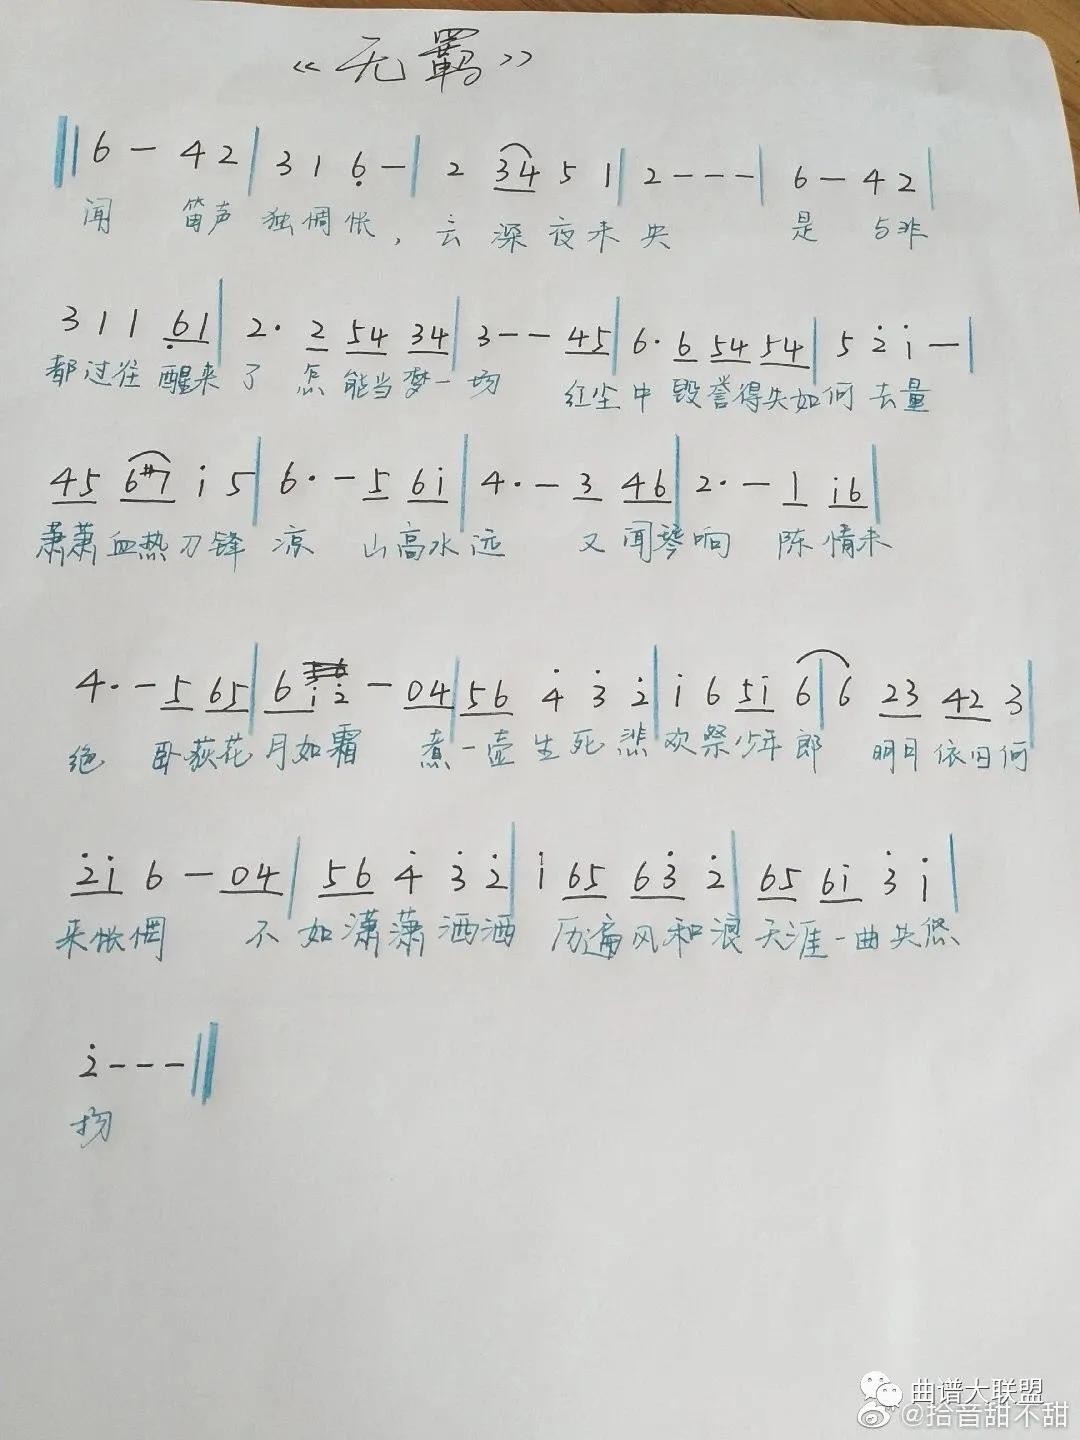 《无羁》
6 — 4 2 | 3 1 6̣ — | 2 34 5 1 | 2 - - - | 6 — 4 2 |
闻 笛声 独惆怅，云深夜未央 是 与非
3 1 1 6̣1 | 2· 2 54 34 | 3 - - 45 | 6· 6 54 54 | 5 2̇ 1̇ — |
都过往 醒来了 怎能当梦一场 红尘中毁誉得失如何去量
45 6#7 1̇ 5 | 6· — 5 61̇ | 4· — 3 46 | 2· — 1 1̇6 |
萧萧血热刀锋凉 山高水远 又闻琴响 陈情未
4· — 5 65 | 6 1̇ 2̇ — 04 | 56 4̇ 3̇ 2̇ | 1̇ 6 51̇ 6 | 6 23 42 3 |
绝 卧荻花月如霜 煮一壶生死悲欢祭少年郎 明月依旧何
2̇1̇ 6 — 04 | 56 4̇ 3̇ 2̇ | 1̇ 65 63̇ 2̇ | 65 61̇ 3̇ 1̇ |
来怅惘 不如潇潇洒洒 历遍风和浪 天涯一曲共悠
2̇ - - - ||
扬
曲谱大联盟
@拾音甜不甜